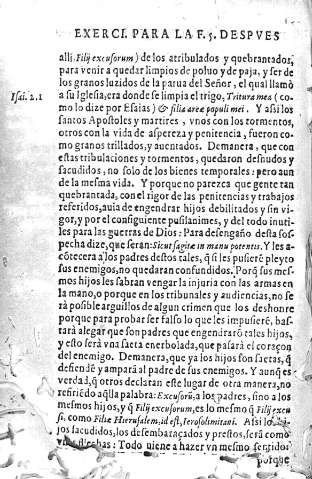 EXERCI. PARA LA F. 5. DESPVES
alli Filij excusorum) de los atribulados y quebrantados,
para venir a quedar limpios de poluo y de paja, y ser de
los granos luzidos de la parua del Señor, el qual llamò
a su Iglesia, era donde se limpia el trigo, Tritura mea (co-
Isai. 2.1
mo lo dize por Esaias) & filia areæ populi mei. Y assi los
santos Apostoles y martires, vnos con los tormentos,
otros con la vida de aspereza y penitencia, fueron co-
mo granos trillados, y auentados. Demanera, que con
estas tribulaciones y tormentos, quedaron desnudos y
sacudidos, no solo de los bienes temporales: pero aun
de la mesma vida. Y porque no parezca que gente tan
quebrantada, con el rigor de las penitencias y trabajos
referidos, auia de engendrar hijos debilitados y sin vi-
gor, y por el consiguiente pusilanimes, y del todo inuti-
les para las guerras de Dios: Para desengaño desta sos-
pecha dize, que seran: Sicut sagitæ in manu potentis. Y les a-
cõtecera a los padres destos tales, q̃ si les pusierẽ pleyto
sus enemigos, no quedaran confundidos. Porq̃ sus mes-
mos hijos les sabran vengar la injuria con las armas en
la mano, o porque en los tribunales y audiencias, no se
rà posible arguillos de algun crimen que los deshonre
porque para probar ser falso lo que les impusierẽ, bas-
tarà alegar que son padres que engendrarõ tales hijos,
y esto serà vna saeta enerbolada, que pasarà el coraçon
del enemigo. Demanera, que ya los hijos son saetas, q̃
defiendẽ y amparã al padre de sus enemigos. Y aunq̃ es
verdad, q̃ otros declaran este lugar de otra manera, no
refiriẽdo aq̃lla palabra: Excusorũ, a los padres, sino a los
mesmos hijos, y q̃ Filij excusorum, es lo mesmo q̃ Filij excu
si, como Filiæ Hierusalem, id est, Ierosolimitani. Assi los hi-
jos sacudidos, los desembaraçados y prestos, serà como
flechas: Todo viene a hazer vn mesmo sentido
porque